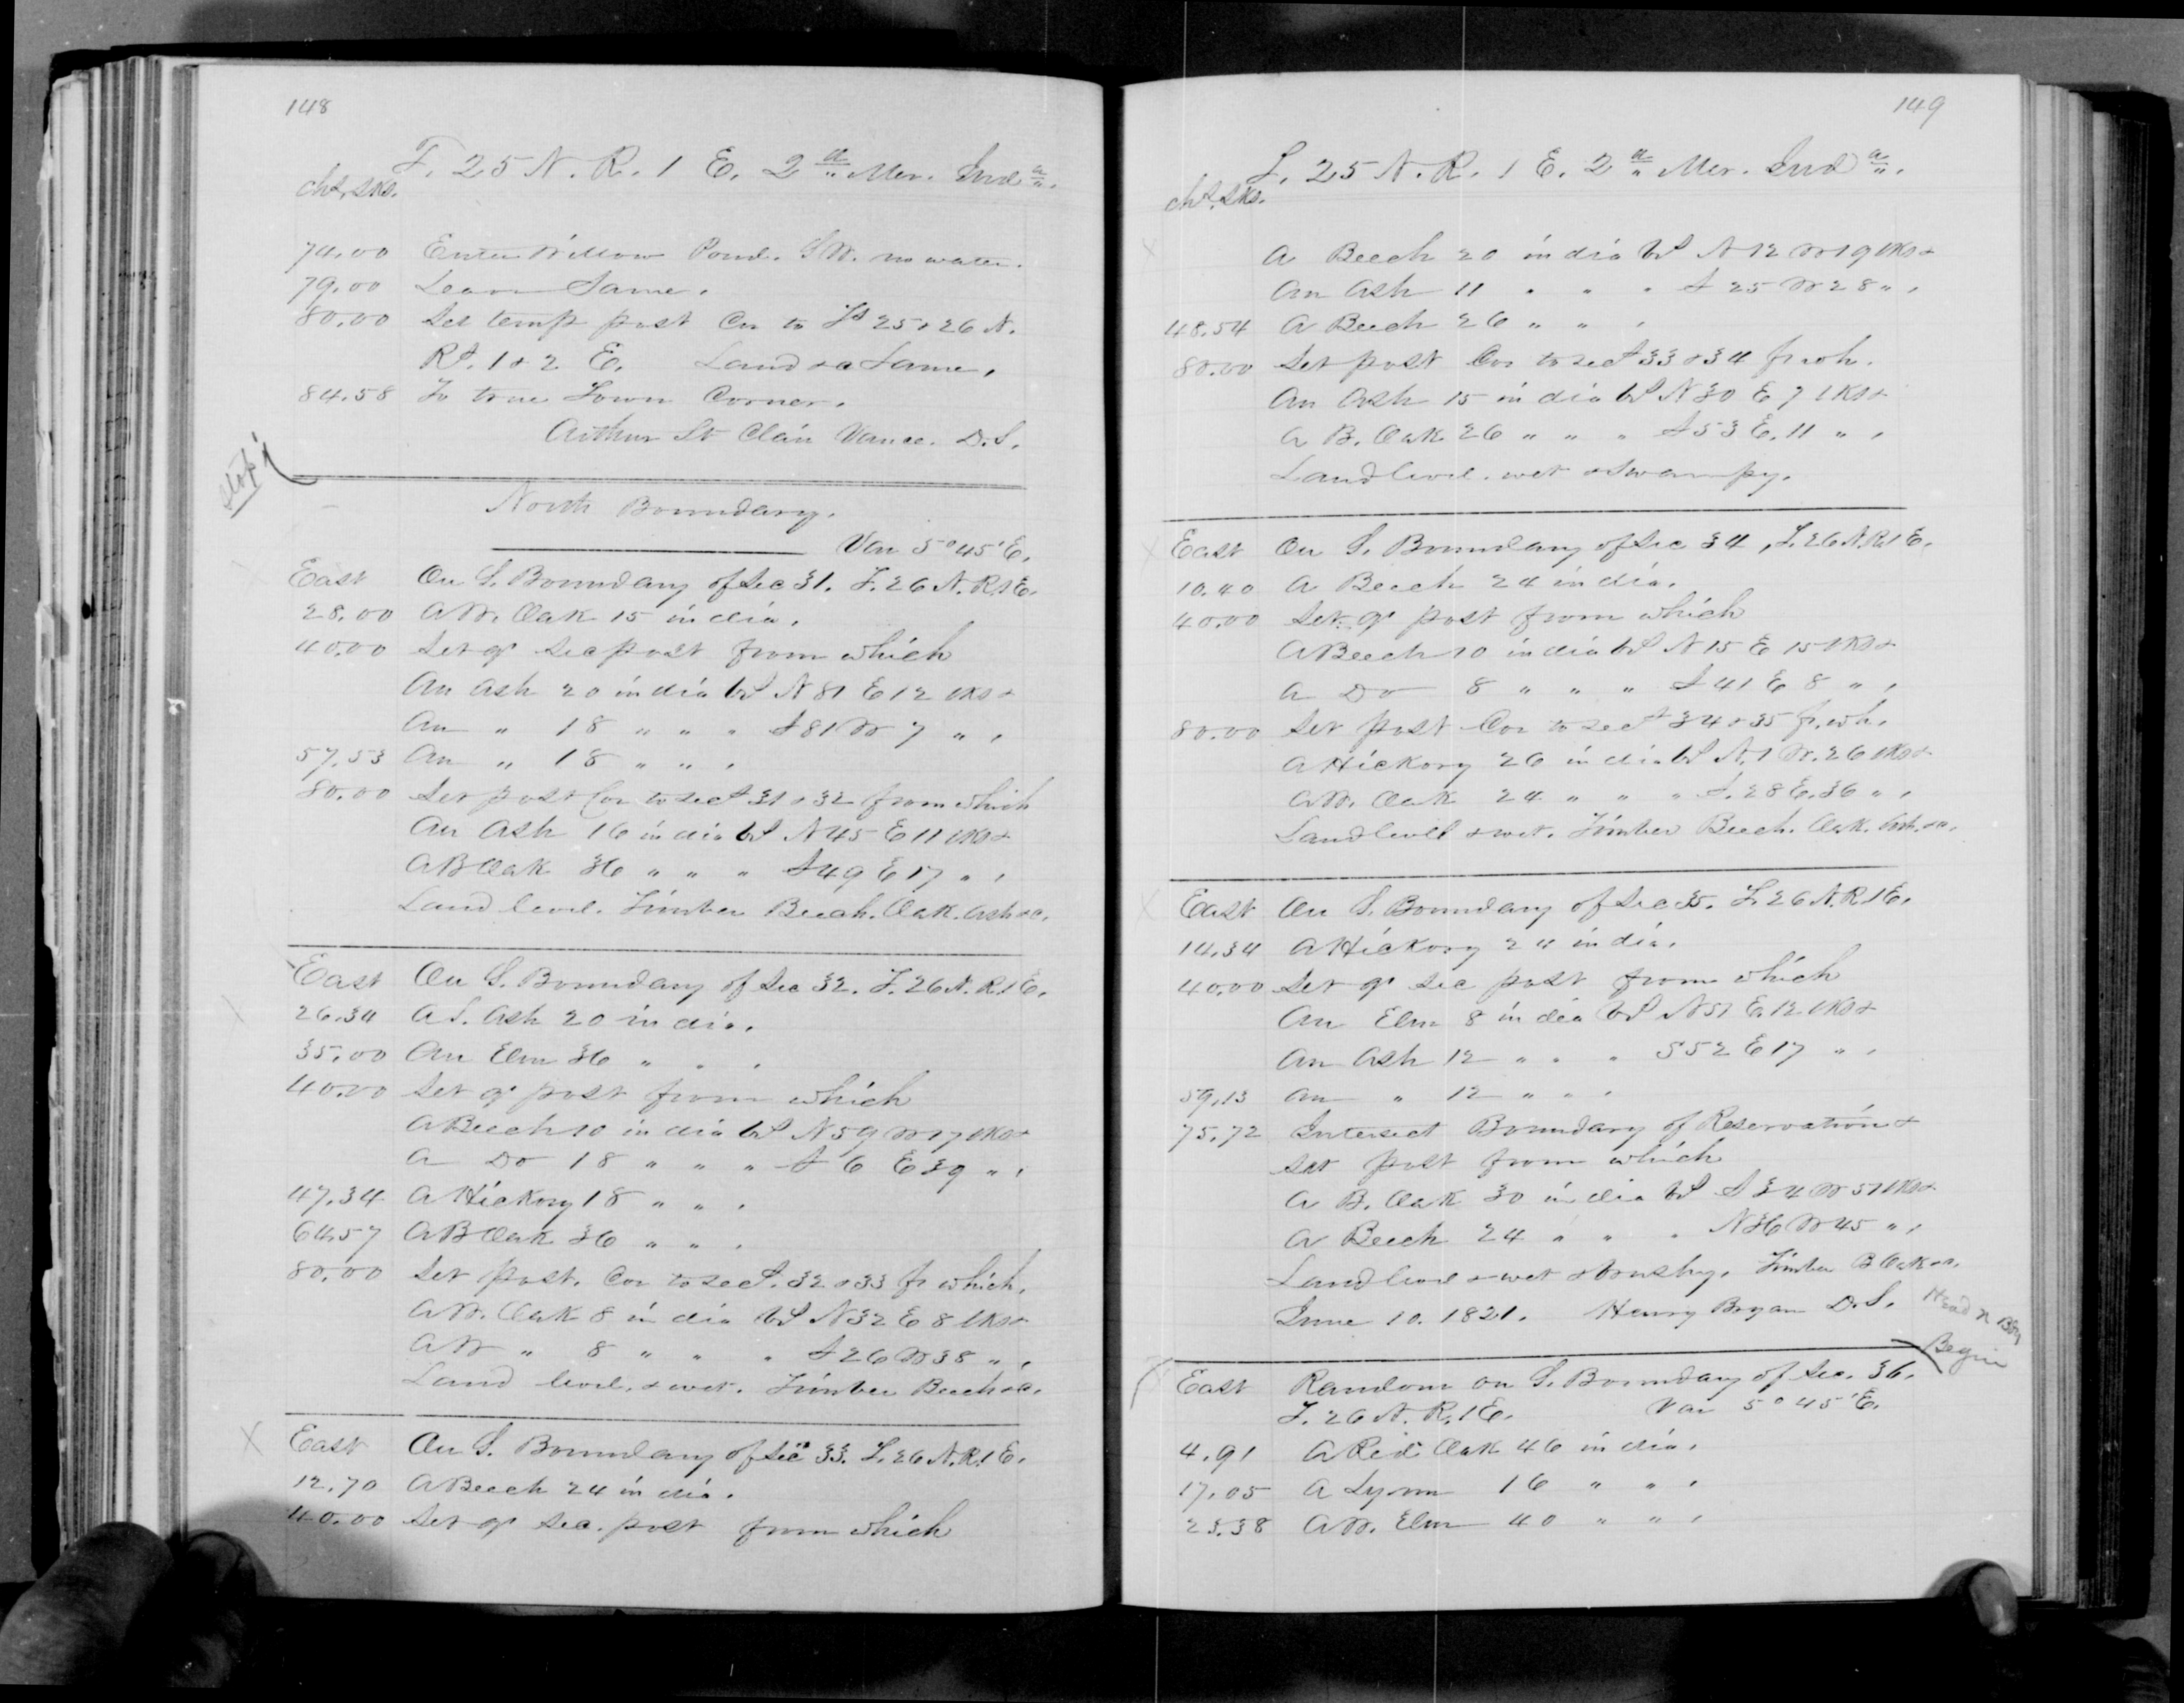 148
T. 25 N. R. 1 E. 2d Mer. Inda.
chs. lks.
74.00 Enter Willow Pond. S.W. no water.
79.00 Leave Same.
80.00 Set temp post Cor to Ts 25 & 26 N.
Rs. 1 & 2 E. Land &c Same.
84.58 To true Town Corner.
Arthur St Clair Vance. D.S.
stop
North Boundary.
Var 5° 45' E.
East On S. Boundary of Sec 31. T. 26 N. R. 1 E.
28.00 A W. Oak 15 in dia.
40.00 Set qr sec post from which
An Ash 20 in dia bs N 81 E 12 lks &
An " 18 " " " S 81 W 7 " .
57.53 An " 18 " " .
80.00 Set post Cor to secs 31 & 32 from which
An Ash 16 in dia bs N 45 E 11 lks &
A B Oak 36 " " " S 49 E 17 " .
Land level. Timber Beech. Oak. Ash &c.
East On S. Boundary of Sec 32. T. 26 N. R. 1 E.
26.34 A S. Ash 20 in dia.
35.00 An Elm 36 " " .
40.00 Set qr post from which
A Beech 10 in dia bs N 59 W 17 lks &
A Do 18 " " " S 6 E 39 " .
47.34 A Hickory 18 " " .
64.57 A B Oak 36 " " .
80.00 Set post. Cor to secs. 32 & 33 fr which.
A W. Oak 8 in dia bs N 32 E 8 lks &
A W " 8 " " " S 26 W 38 " .
Land level. & wet. Timber Beech &c.
X East On S. Boundary of Sec 33. T. 26 N. R. 1 E.
12.70 A Beech 24 in dia.
40.00 Set qr sec. post from which
149
T. 25 N. R. 1 E. 2d Mer. Inda.
chs. lks.
A Beech 20 in dia bs N 12 W 19 lks &
An Ash 11 " " " S 25 W 28 " .
48.54 A Beech 26 " " .
80.00 Set post Cor to secs 33 & 34 fr wh.
An Ash 15 in dia bs N 30 E 7 lks &
A B. Oak 26 " " " S 53 E. 11 " .
Land level. wet & Swampy.
East On S. Boundary of Sec 34, T. 26 N. R. 1 E.
10.40 A Beech 24 in dia.
40.00 Set qr post from which
A Beech 10 in dia bs N 15 E 15 lks &
A Do 8 " " " S 41 E 8 " .
80.00 Set post Cor to secs 34 & 35 fr. wh.
A Hickory 26 in dia bs N. 1 W. 26 lks &
A W. Oak 24 " " " S. 28 E. 36 " .
Land level & wet. Timber Beech. Oak. Ash. &c.
East On S. Boundary of Sec 35. T. 26 N. R. 1 E.
14.34 A Hickory 24 in dia.
40.00 Set qr sec post from which
An Elm 8 in dia bs N 57 E. 12 lks &
An Ash 12 " " " S 52 E 17 " .
59.13 An " 12 " " .
75.72 Intersect Boundary of Reservation &
set post from which
A B. Oak 30 in dia bs S 34 W 57 lks &
A Beech 24 " " " N 36 W 45 " .
Land level & wet & brushy. Timber B Oak &c.
June 10. 1821. Henry Bryan D.S.
Head N Bdy
Begin
East Random on S. Boundary of Sec. 36.
T. 26 N. R. 1 E. Var 5° 45' E.
4.91 A Red Oak 46 in dia.
17.05 A Lynn 16 " " .
23.38 A W. Elm 40 " " .